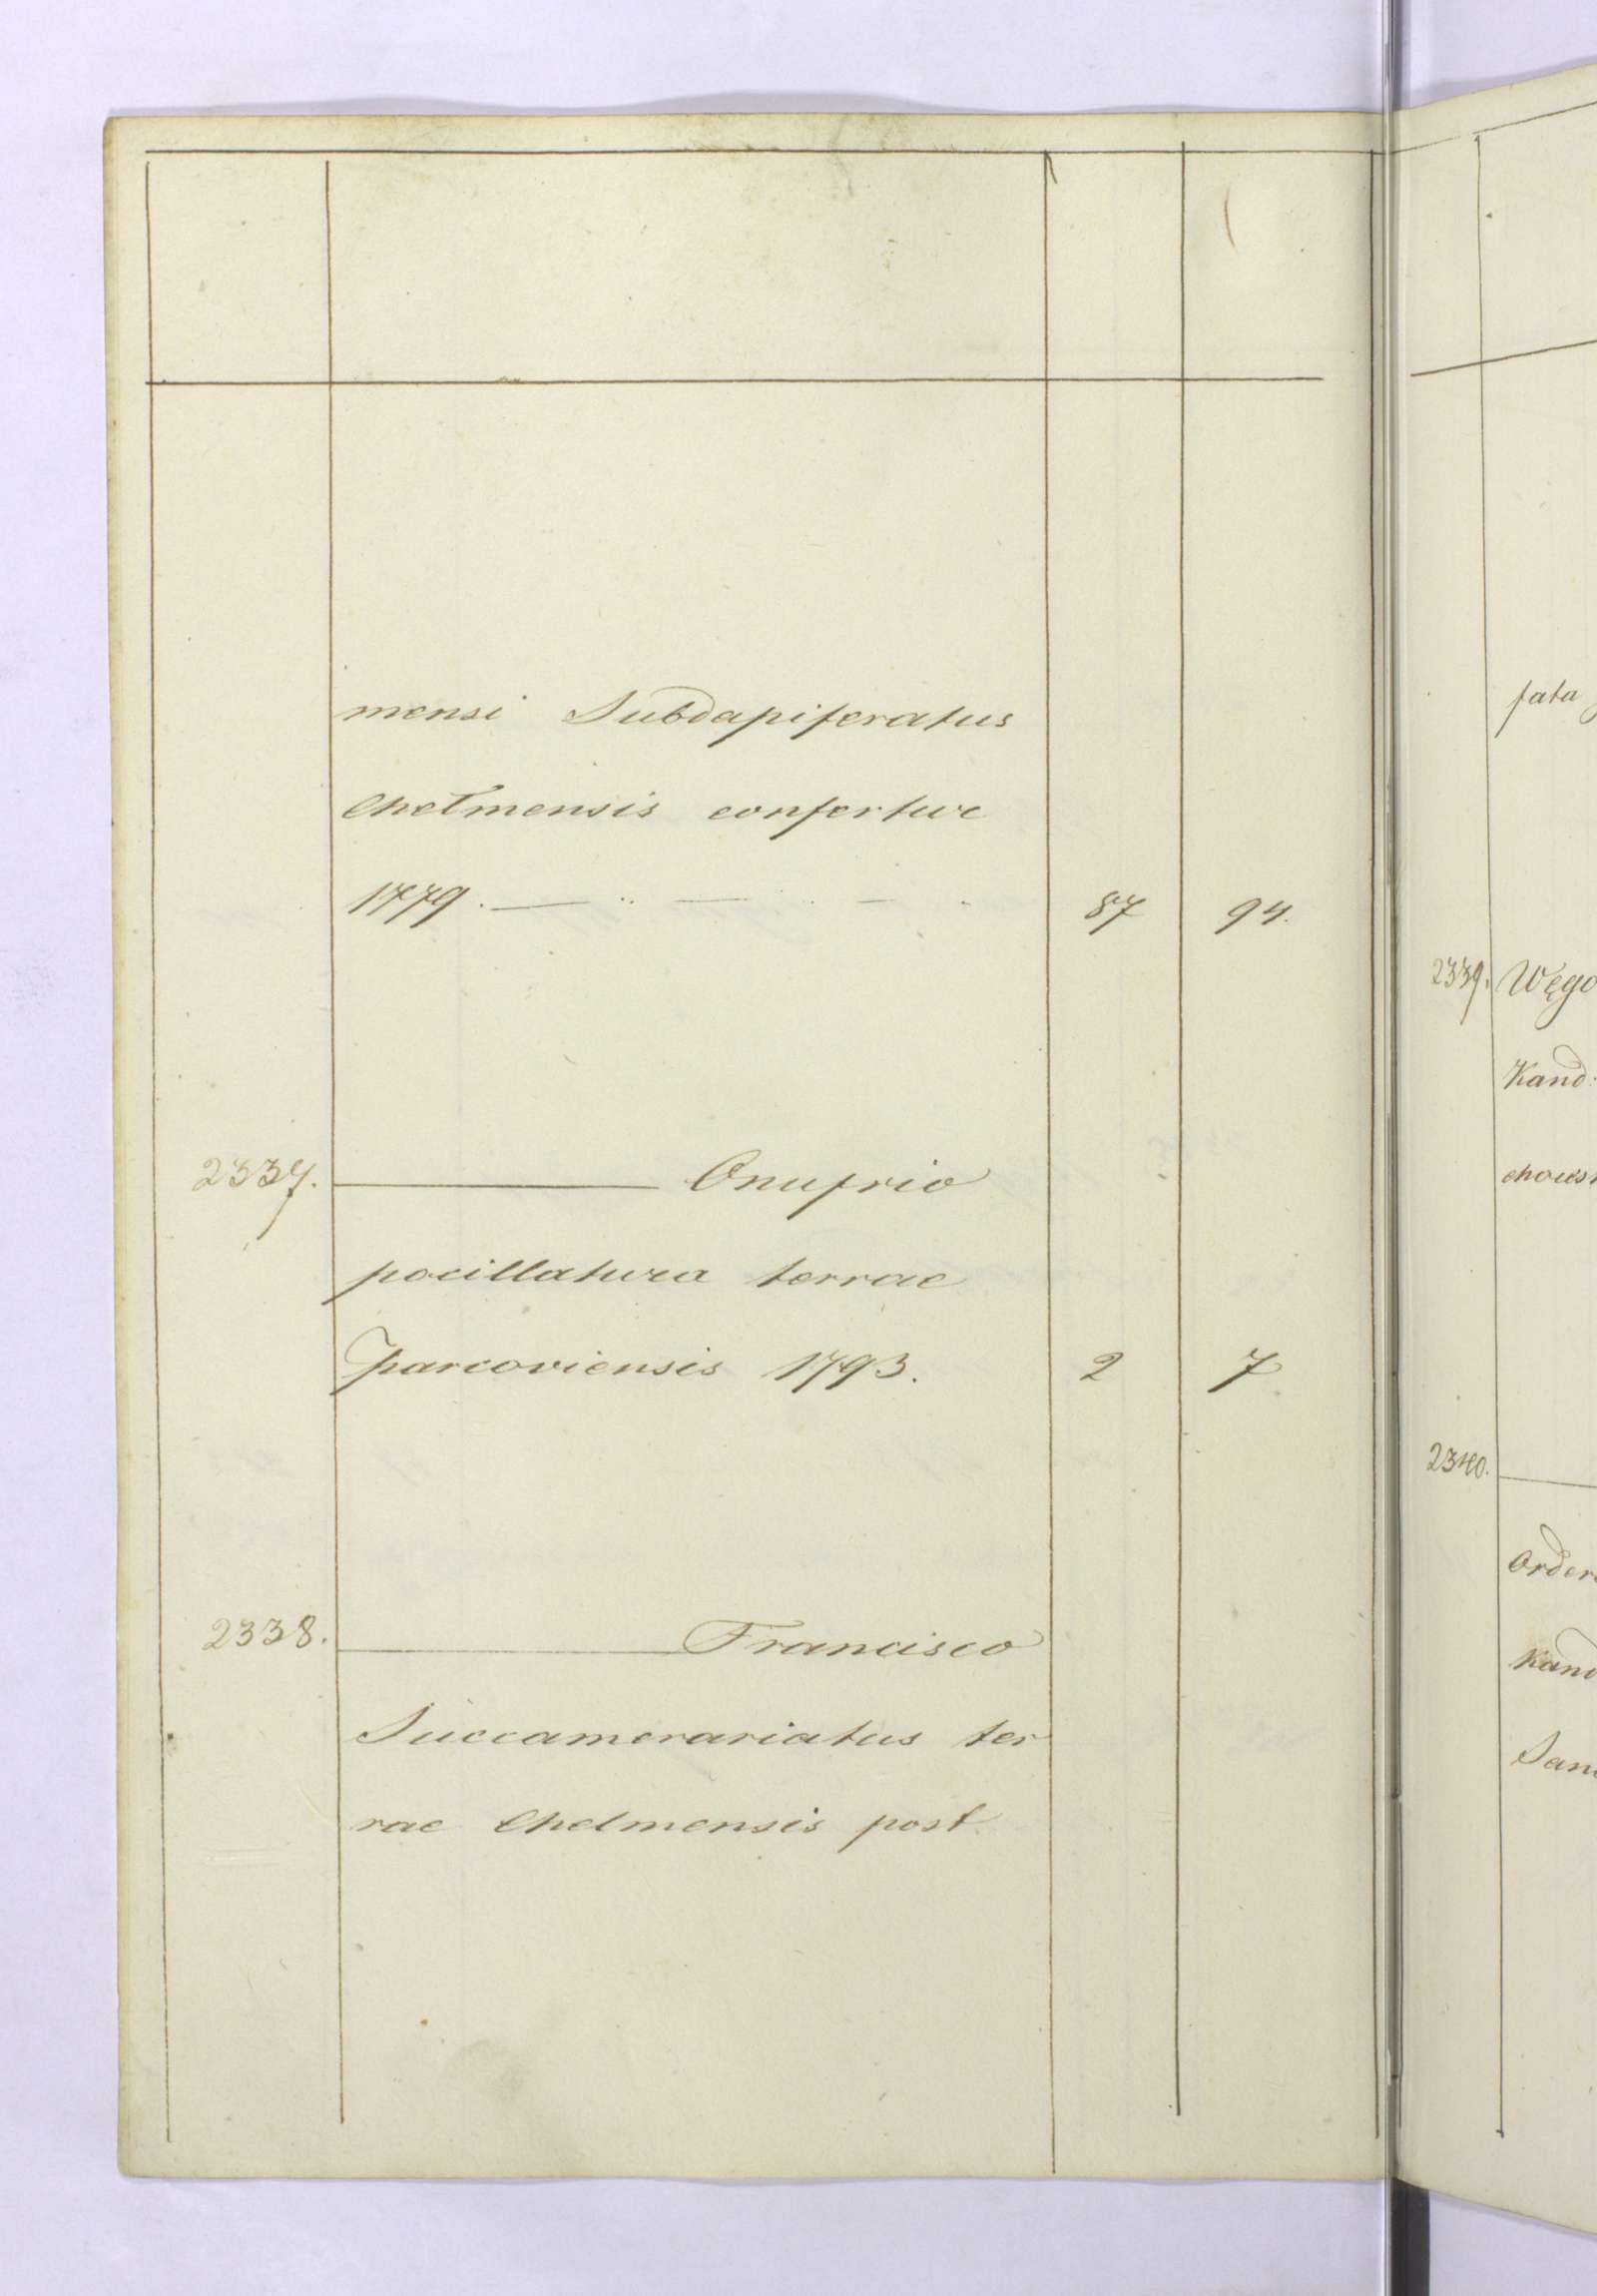 mensi Subdapiferatus
Chełmensis confertur
1779. — .. — . — . 87 94.
2337. ——— Onufrio
pocillatura terrae
Parcoviensis 1793. 2 7
2338. ——— Francisco
Succamerariatus ter
rae Chelmensis post
fata
2339. Węgo
Kand:
chows
2340. ———
Order
Kand
San